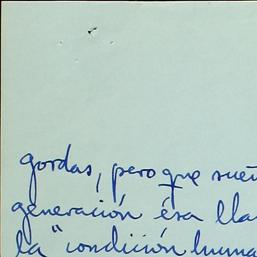 gordas, pero que sueñ
generación ésa lla
la "condición huma